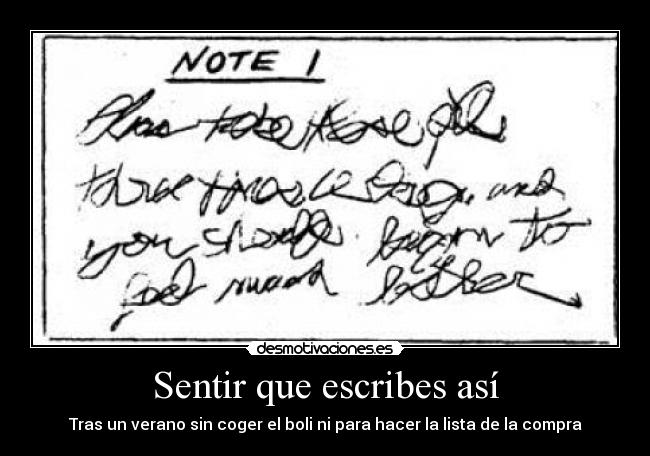 NOTE 1
Please take these pills
three times a day, and
you should begin to
feel much better
desmotivaciones.es
Sentir que escribes así
Tras un verano sin coger el boli ni para hacer la lista de la compra